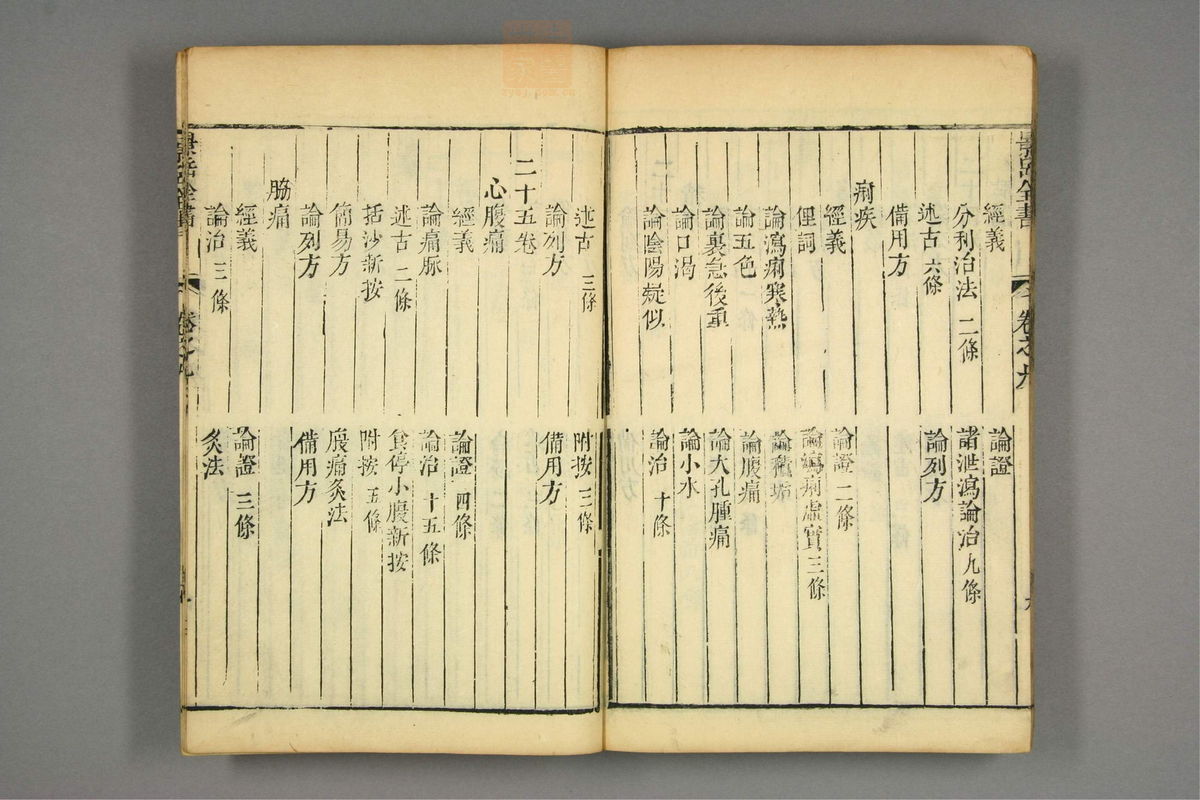 經義　論證
分利治法 二條　諸泄瀉論治 九條
述古 六條　論列方
備用方
痢疾
經義　論證 二條
俚詞　論瀉痢虛實 三條
論瀉痢寒熱　論積垢
論五色　論腹痛
論裏急後重　論大孔腫痛
論口渴　論小水
論陰陽疑似　論治 十條
述古 三條　附按 三條
論列方　備用方
二十五卷
心腹痛
經義　論證 四條
論痛脈　論治 十五條
述古 二條　食停小腹新按
括沙新按　附按 五條
簡易方　腹痛灸法
論列方　備用方
脇痛
經義　論證 三條
論治 三條　灸法
景岳全書
卷之